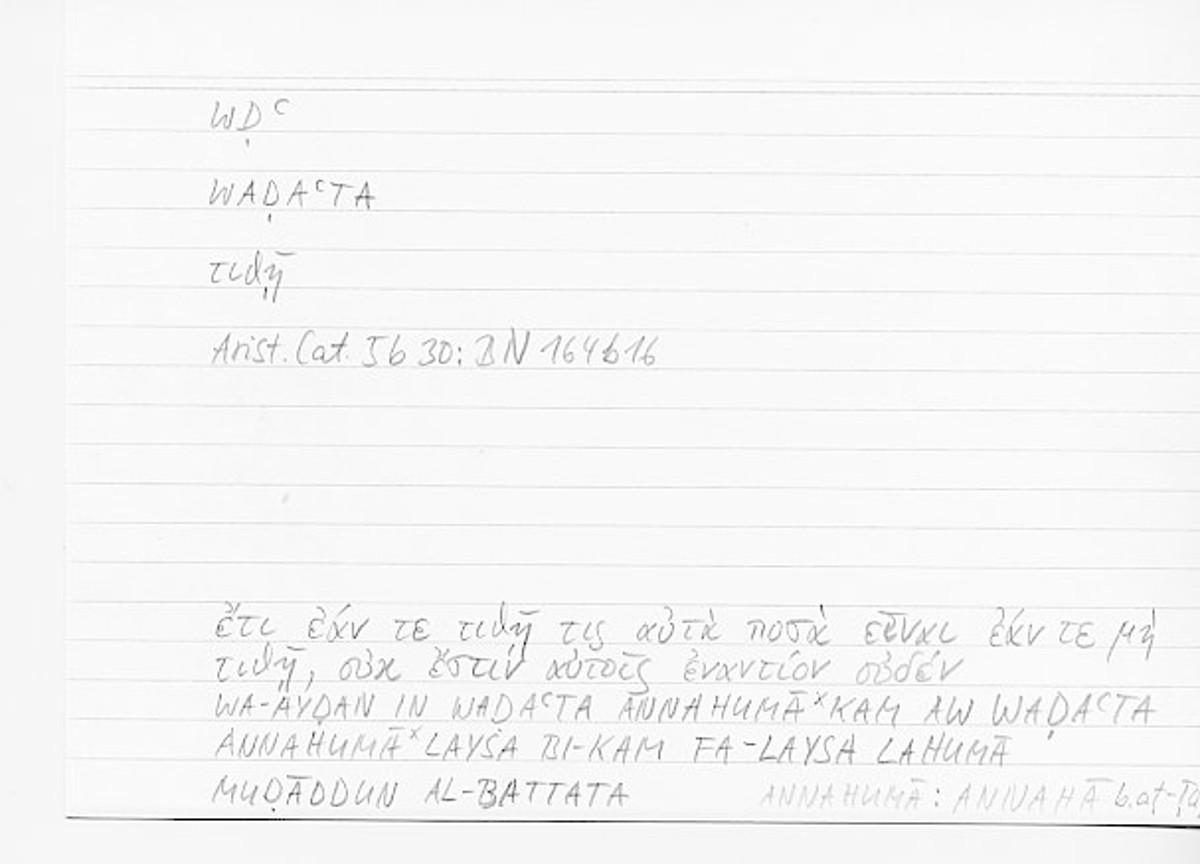 WḌʿ
WAḌAʿTA
τιθῇ
Arist. Cat. 5b 30: BN 164b16
ἔτι ἐάν τε τιθῇ τις αὐτὰ ποσὰ εἶναι ἐάν τε μὴ
τιθῇ, οὐκ ἔστιν αὐτοῖς ἐναντίον οὐδέν
WA-AYḌAN IN WAḌAʿTA ANNAHUMĀˣ KAM AW WAḌAʿTA
ANNAHUMĀˣ LAYSA BI-KAM FA-LAYSA LAHUMĀ
MUḌĀDDUN AL-BATTATA ANNAHUMĀ: ANNAHĀ b.aṭ-Ṭa